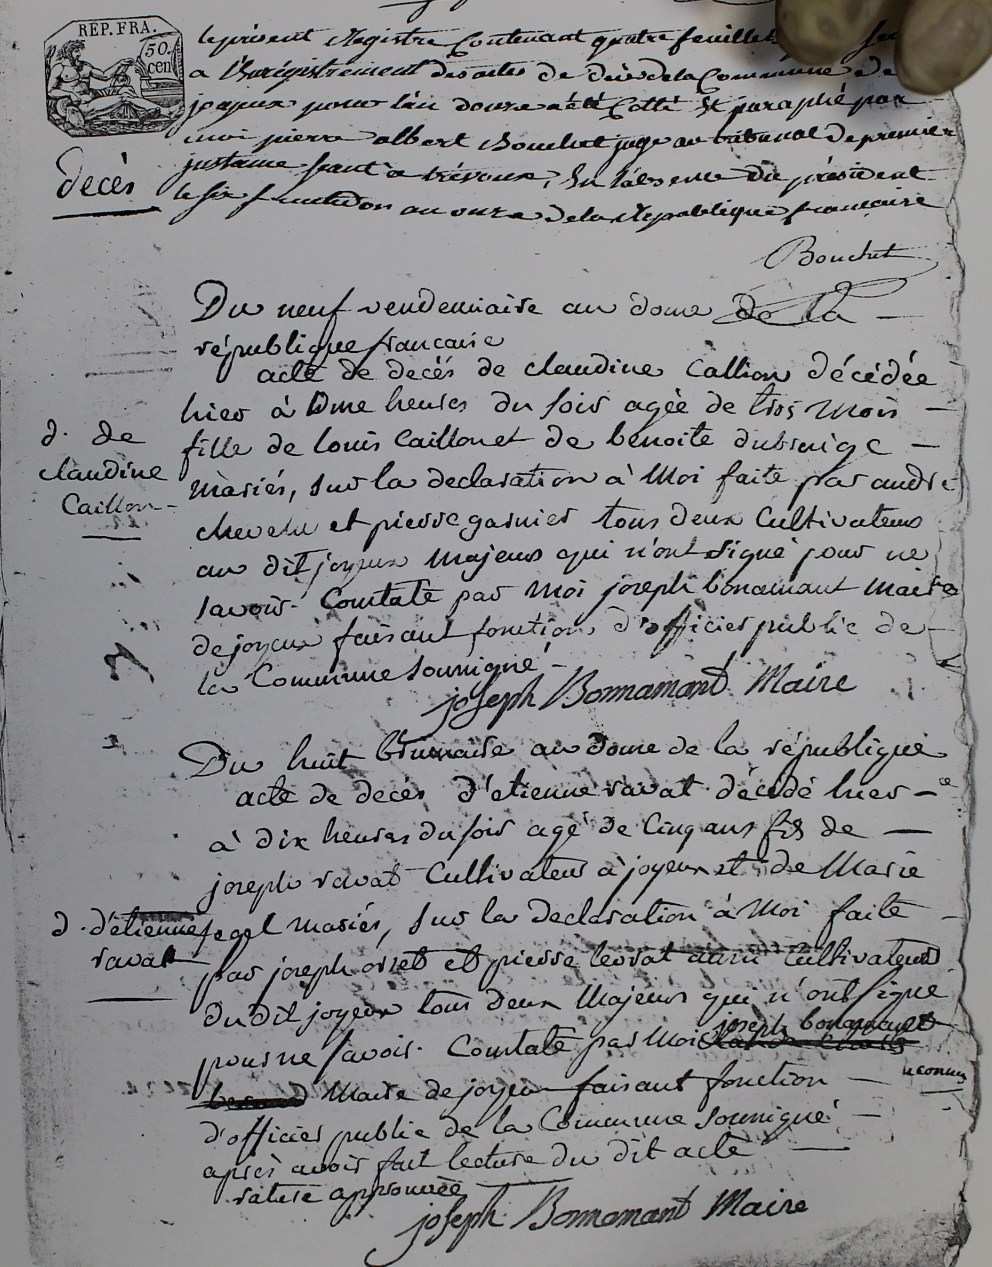 REP. FRA.
50.
cen
le présent Registre Contenant quatre feuillets
a l'Enrégistrement des actes de décès de la Commune de
joyeux pour l'an douze a été Cotté et paraphé par
moi pierre albert Bouchet juge au tribunal de premier
justame seant a trévoux, En l'absence du président
le six fructidor an onze de la République française
décès
Bouchet
Du neuf vendemiaire an dome de la
république francaise
acte de decés de claudine Caillon décédée
hier à Dme heures du soir agée de trois mois
fille de louis Caillon et de benoite dubruige
mariés, sur la declaration à moi faite par andré
chevelu et pierre garnier tous deux Cultivateurs
au dit joyeux majeurs qui n'ont signé pour ne
savoir. Constaté par moi joseph bonamant maire
de joyeux faisant fonctions d'officier public de
la Commune soussigné
d. de
claudine
Caillon
joseph Bonnamant Maire
Du huit brumaire an dome de la république
acte de decés d'etienne ravat décédé hier
à dix heures du soir agé de Cinq ans fils de
joseph ravat Cultivateur à joyeux et de Marie
segel mariés, sur la declaration à moi faite
d. d'étienne
ravat
par joseph orset et pierre levrat Cultivateurs
du dit joyeux tous deux Majeurs qui n'ont signé
pour ne savoir. Constaté par Moi joseph bonamant
Maire de joyeux faisant fonction
reconnu
d'officier public de la Commune soussigné
après avoir fait lecture du dit acte
rature approuvée
joseph Bonnamant Maire